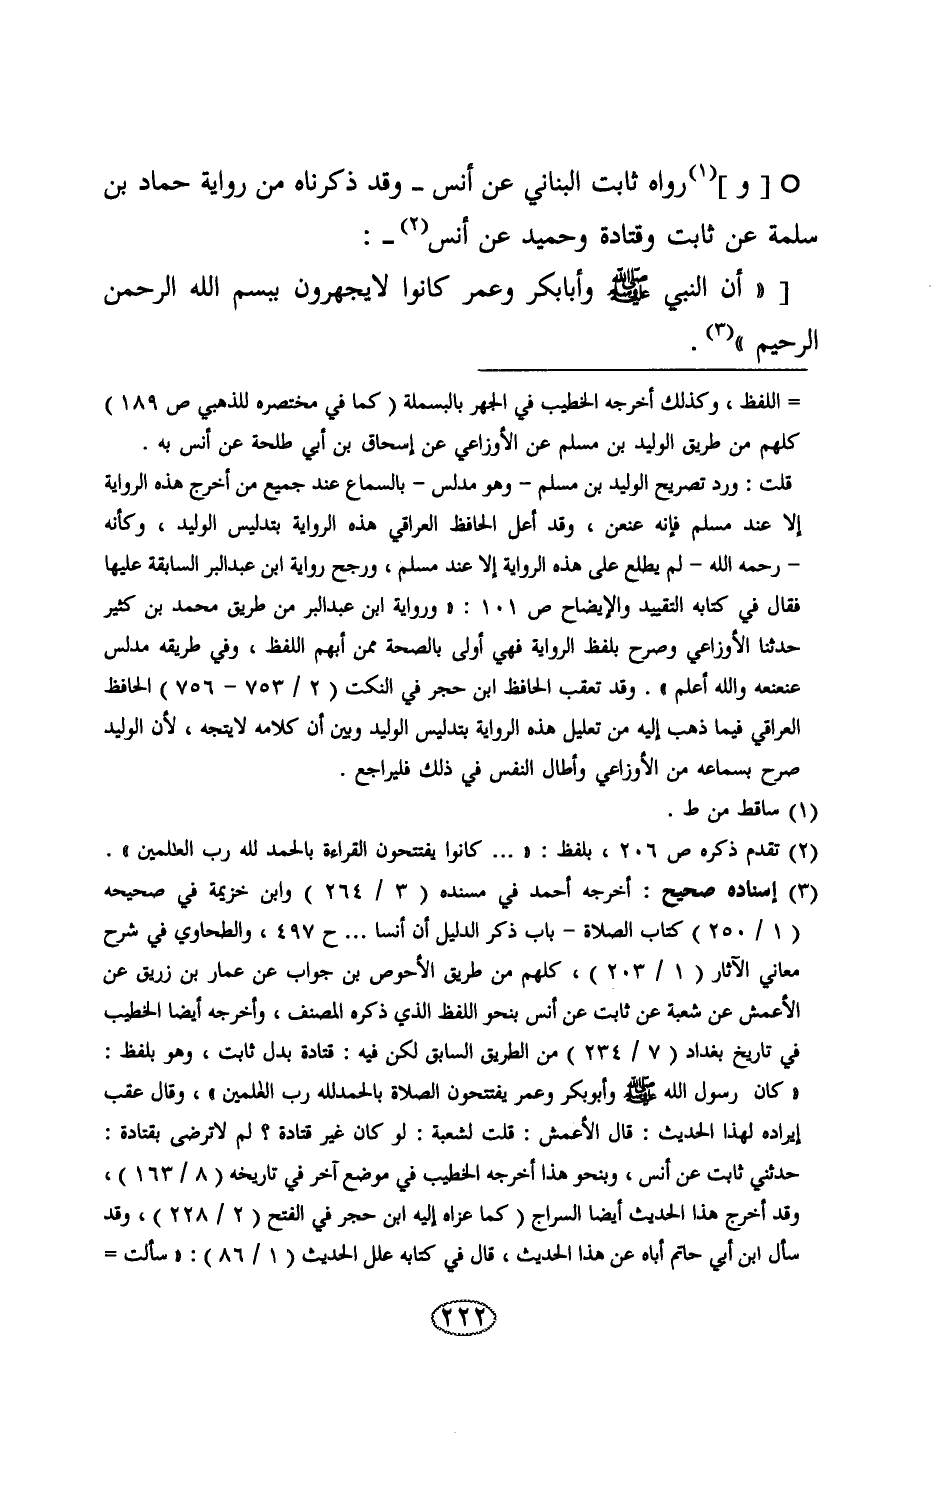 ○ [ و ](١) رواه ثابت البناني عن أنس ـ وقد ذكرناه من رواية حماد بن
سلمة عن ثابت وقتادة وحميد عن أنس(٢) ـ :
[ « أن النبي ﷺ وأبابكر وعمر كانوا لايجهرون ببسم الله الرحمن
الرحيم »(٣) .
= اللفظ ، وكذلك أخرجه الخطيب في الجهر بالبسملة ( كما في مختصره للذهبي ص ١٨٩ )
كلهم من طريق الوليد بن مسلم عن الأوزاعي عن إسحاق بن أبي طلحة عن أنس به .
قلت : ورد تصريح الوليد بن مسلم – وهو مدلس – بالسماع عند جميع من أخرج هذه الرواية
إلا عند مسلم فإنه عنعن ، وقد أعل الحافظ العراقي هذه الرواية بتدليس الوليد ، وكأنه
– رحمه الله – لم يطلع على هذه الرواية إلا عند مسلم ، ورجح رواية ابن عبدالبر السابقة عليها
فقال في كتابه التقييد والإيضاح ص ١٠١ : « ورواية ابن عبدالبر من طريق محمد بن كثير
حدثنا الأوزاعي وصرح بلفظ الرواية فهي أولى بالصحة ممن أبهم اللفظ ، وفي طريقه مدلس
عنعنه والله أعلم » . وقد تعقب الحافظ ابن حجر في النكت ( ٢ / ٧٥٣ – ٧٥٦ ) الحافظ
العراقي فيما ذهب إليه من تعليل هذه الرواية بتدليس الوليد وبين أن كلامه لايتجه ، لأن الوليد
صرح بسماعه من الأوزاعي وأطال النفس في ذلك فليراجع .
(١) ساقط من ط .
(٢) تقدم ذكره ص ٢٠٦ ، بلفظ : « ... كانوا يفتتحون القراءة بالحمد لله رب العلمين » .
(٣) إسناده صحيح : أخرجه أحمد في مسنده ( ٣ / ٢٦٤ ) وابن خزيمة في صحيحه
( ١ / ٢٥٠ ) كتاب الصلاة – باب ذكر الدليل أن أنسا ... ح ٤٩٧ ، والطحاوي في شرح
معاني الآثار ( ١ / ٢٠٣ ) ، كلهم من طريق الأحوص بن جواب عن عمار بن زريق عن
الأعمش عن شعبة عن ثابت عن أنس بنحو اللفظ الذي ذكره المصنف ، وأخرجه أيضا الخطيب
في تاريخ بغداد ( ٧ / ٢٣٤ ) من الطريق السابق لكن فيه : قتادة بدل ثابت ، وهو بلفظ :
« كان رسول الله ﷺ وأبوبكر وعمر يفتتحون الصلاة بالحمدلله رب العلمين » ، وقال عقب
إيراده لهذا الحديث : قال الأعمش : قلت لشعبة : لو كان غير قتادة ؟ لم لاترضى بقتادة :
حدثني ثابت عن أنس ، وبنحو هذا أخرجه الخطيب في موضع آخر في تاريخه ( ٨ / ١٦٣ ) ،
وقد أخرج هذا الحديث أيضا السراج ( كما عزاه إليه ابن حجر في الفتح ( ٢ / ٢٢٨ ) ، وقد
سأل ابن أبي حاتم أباه عن هذا الحديث ، قال في كتابه علل الحديث ( ١ / ٨٦ ) : « سألت =
٢٢٢